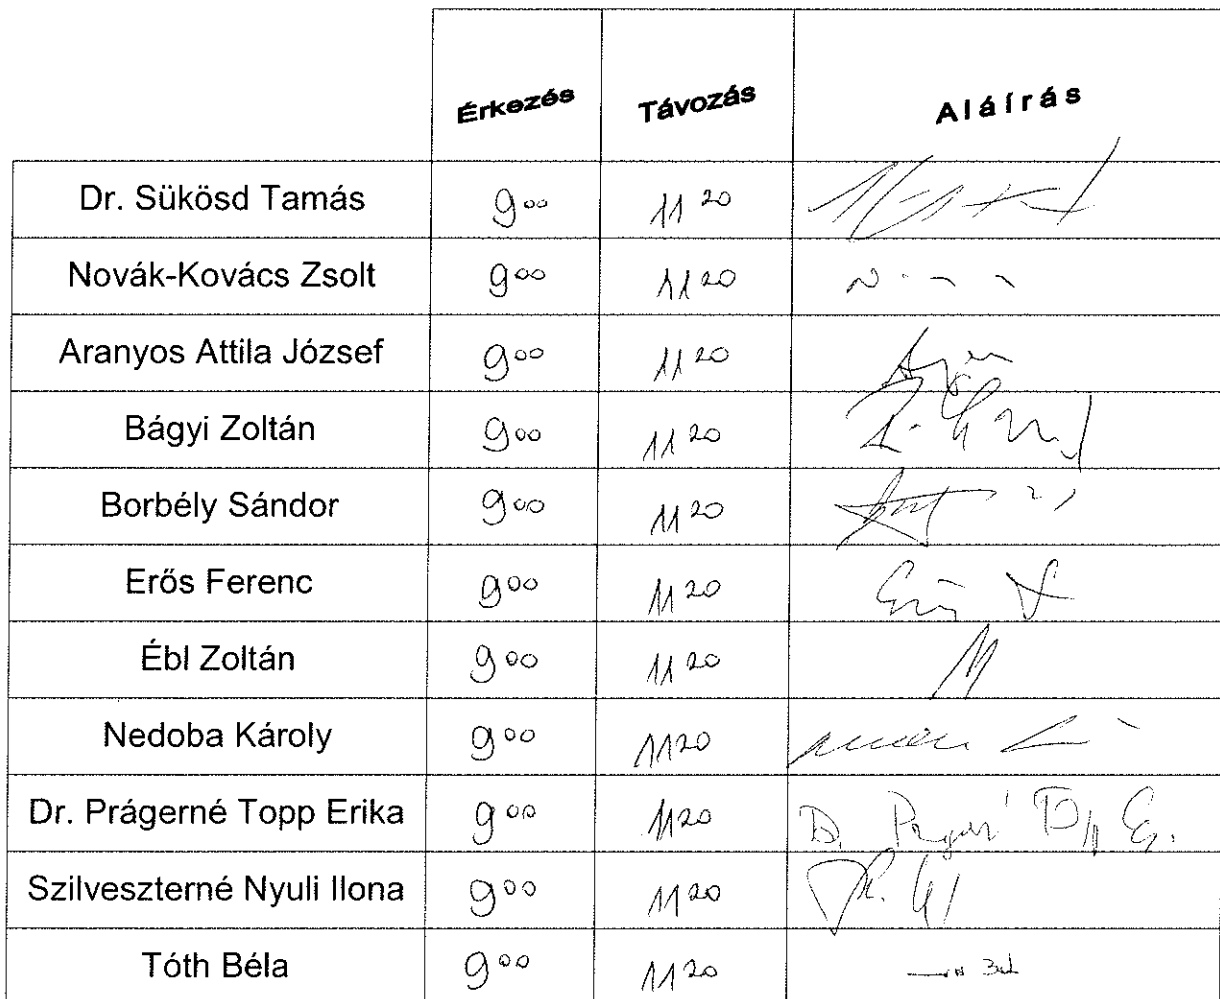 Érkezés Távozás Aláírás
Dr. Sükösd Tamás 9⁰⁰ 11²⁰
Novák-Kovács Zsolt 9⁰⁰ 11²⁰
Aranyos Attila József 9⁰⁰ 11²⁰
Bágyi Zoltán 9⁰⁰ 11²⁰
Borbély Sándor 9⁰⁰ 11²⁰
Erős Ferenc 9⁰⁰ 11²⁰
Ébl Zoltán 9⁰⁰ 11²⁰
Nedoba Károly 9⁰⁰ 11²⁰
Dr. Prágerné Topp Erika 9⁰⁰ 11²⁰
Szilveszterné Nyuli Ilona 9⁰⁰ 11²⁰
Tóth Béla 9⁰⁰ 11²⁰